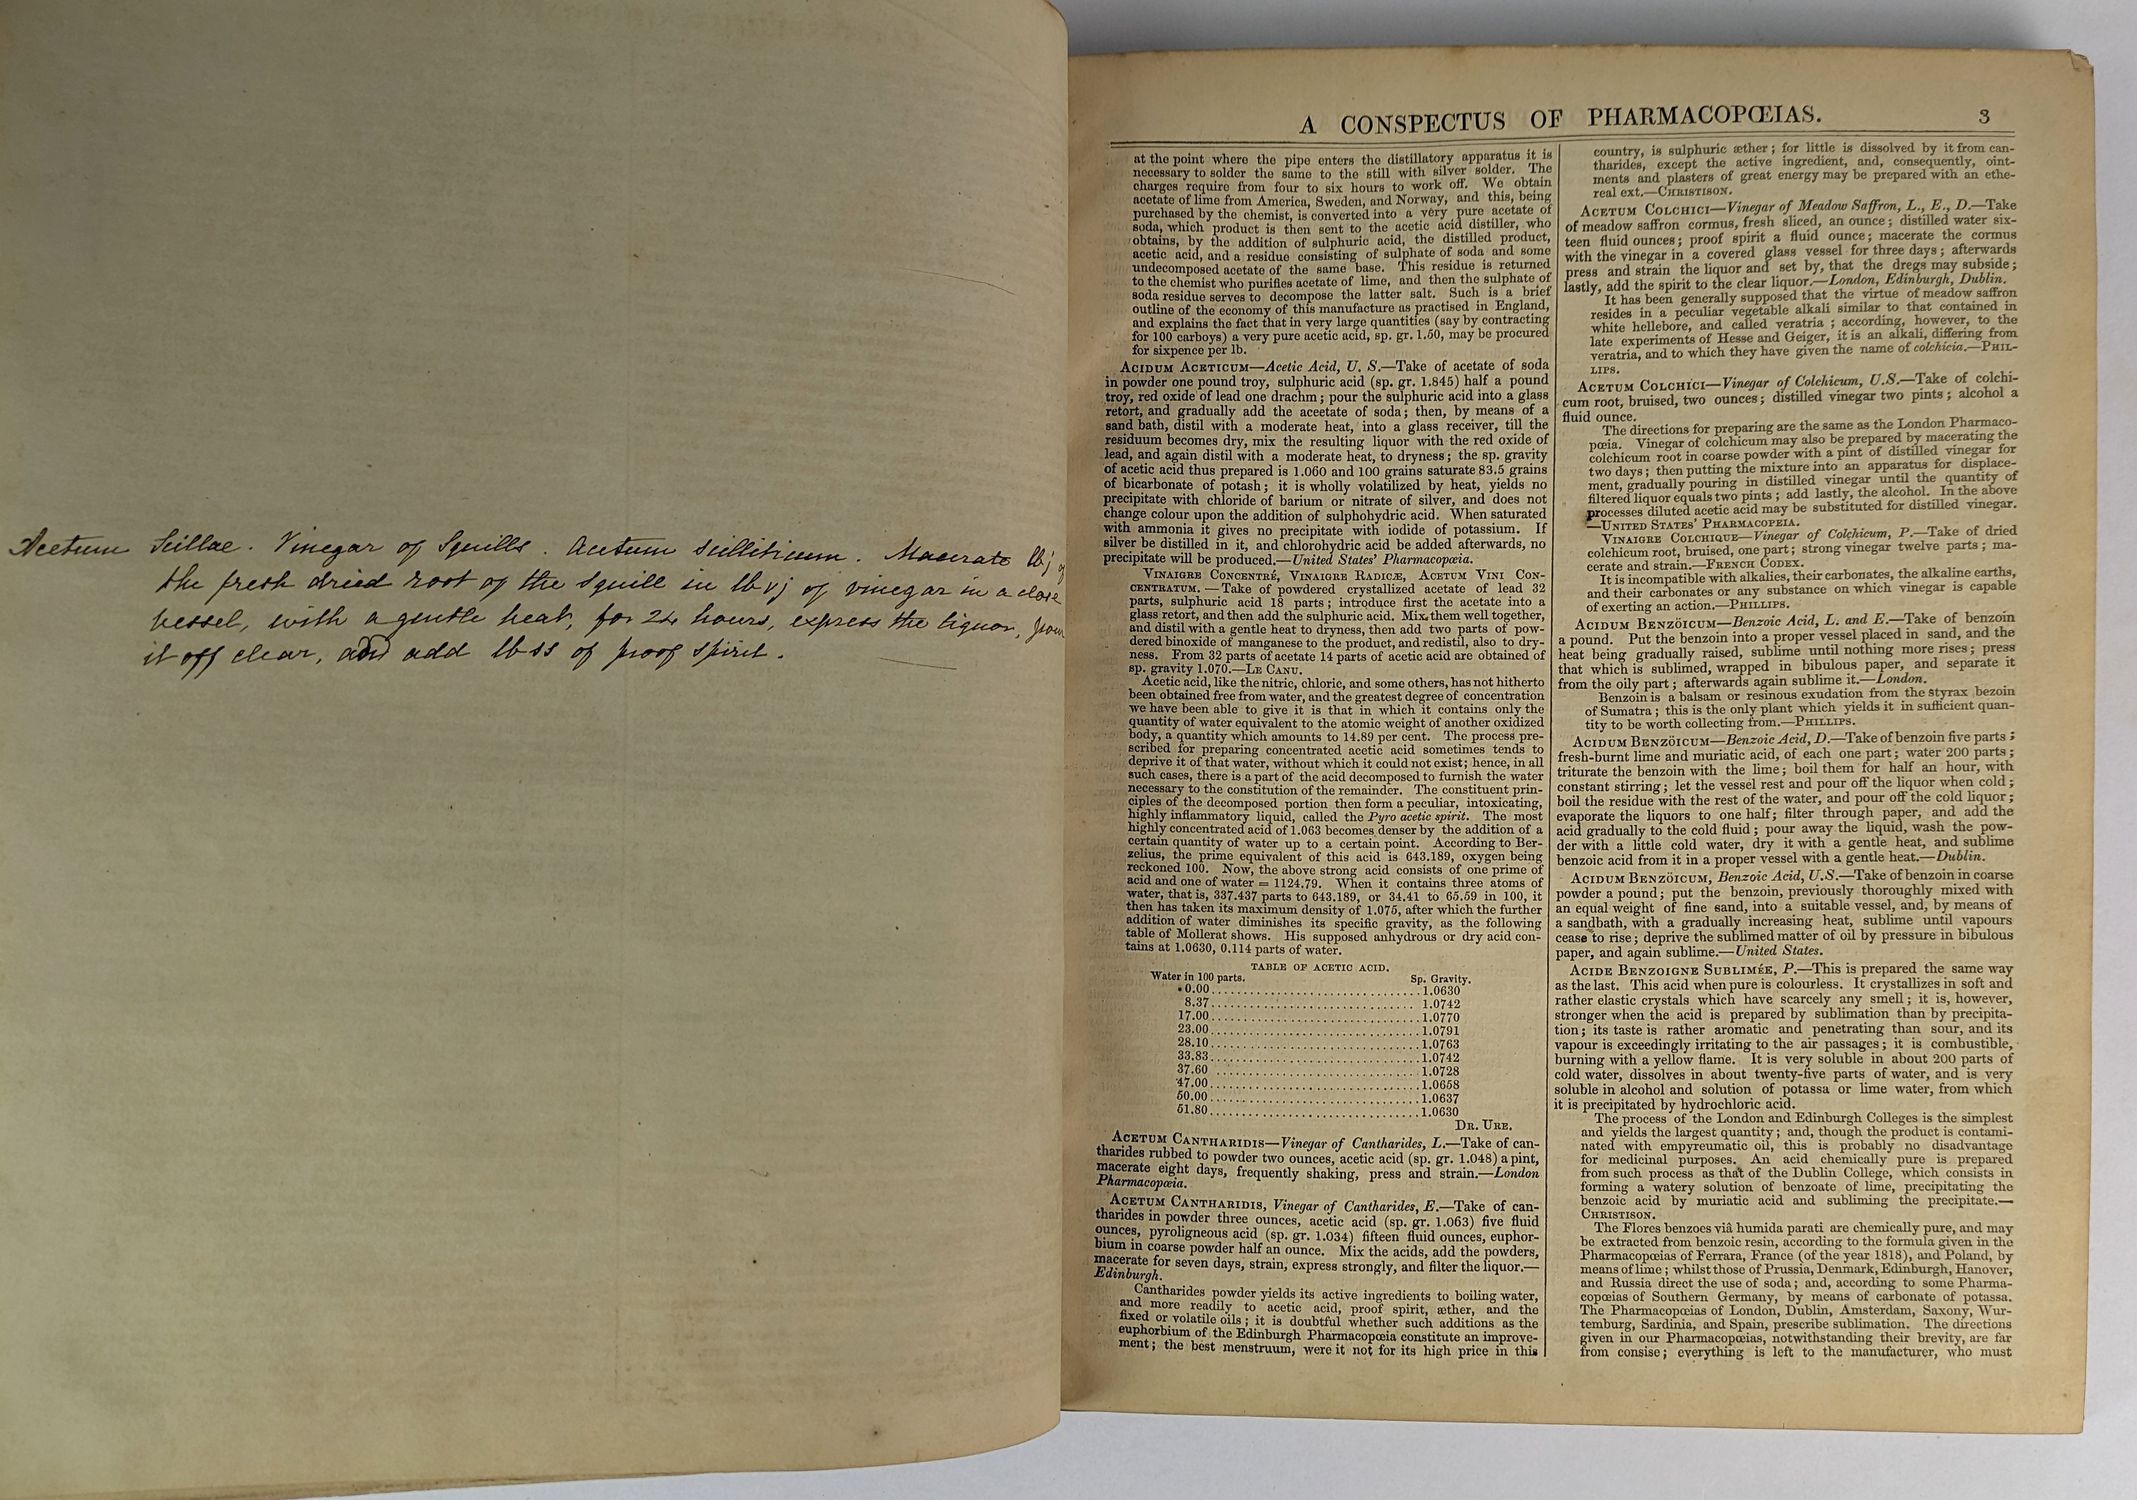 Acetum Scillae. Vinegar of Squills. Acetum scilliticum. Macerate lbj of
the fresh dried root of the squill in lbvj of vinegar in a close
vessel, with a gentle heat, for 24 hours, express the liquor, pour
it off clear, and add lbss of proof spirit.
A CONSPECTUS OF PHARMACOPŒIAS. 3
at the point where the pipe enters the distillatory apparatus it is
necessary to solder the same to the still with silver solder. The
charges require from four to six hours to work off. We obtain
acetate of lime from America, Sweden, and Norway, and this, being
purchased by the chemist, is converted into a very pure acetate of
soda, which product is then sent to the acetic acid distiller, who
obtains, by the addition of sulphuric acid, the distilled product,
acetic acid, and a residue consisting of sulphate of soda and some
undecomposed acetate of the same base. This residue is returned
to the chemist who purifies acetate of lime, and then the sulphate of
soda residue serves to decompose the latter salt. Such is a brief
outline of the economy of this manufacture as practised in England,
and explains the fact that in very large quantities (say by contracting
for 100 carboys) a very pure acetic acid, sp. gr. 1.50, may be procured
for sixpence per lb.
ACIDUM ACETICUM—Acetic Acid, U. S.—Take of acetate of soda
in powder one pound troy, sulphuric acid (sp. gr. 1.845) half a pound
troy, red oxide of lead one drachm; pour the sulphuric acid into a glass
retort, and gradually add the aceetate of soda; then, by means of a
sand bath, distil with a moderate heat, into a glass receiver, till the
residuum becomes dry, mix the resulting liquor with the red oxide of
lead, and again distil with a moderate heat, to dryness; the sp. gravity
of acetic acid thus prepared is 1.060 and 100 grains saturate 83.5 grains
of bicarbonate of potash; it is wholly volatilized by heat, yields no
precipitate with chloride of barium or nitrate of silver, and does not
change colour upon the addition of sulphohydric acid. When saturated
with ammonia it gives no precipitate with iodide of potassium. If
silver be distilled in it, and chlorohydric acid be added afterwards, no
precipitate will be produced.—United States' Pharmacopœia.
VINAIGRE CONCENTRÉ, VINAIGRE RADICÆ, ACETUM VINI CON-
CENTRATUM.—Take of powdered crystallized acetate of lead 32
parts, sulphuric acid 18 parts; introduce first the acetate into a
glass retort, and then add the sulphuric acid. Mix them well together,
and distil with a gentle heat to dryness, then add two parts of pow-
dered binoxide of manganese to the product, and redistil, also to dry-
ness. From 32 parts of acetate 14 parts of acetic acid are obtained of
sp. gravity 1.070.—LE CANU.
Acetic acid, like the nitric, chloric, and some others, has not hitherto
been obtained free from water, and the greatest degree of concentration
we have been able to give it is that in which it contains only the
quantity of water equivalent to the atomic weight of another oxidized
body, a quantity which amounts to 14.89 per cent. The process pre-
scribed for preparing concentrated acetic acid sometimes tends to
deprive it of that water, without which it could not exist; hence, in all
such cases, there is a part of the acid decomposed to furnish the water
necessary to the constitution of the remainder. The constituent prin-
ciples of the decomposed portion then form a peculiar, intoxicating,
highly inflammatory liquid, called the Pyro acetic spirit. The most
highly concentrated acid of 1.063 becomes denser by the addition of a
certain quantity of water up to a certain point. According to Ber-
zelius, the prime equivalent of this acid is 643.189, oxygen being
reckoned 100. Now, the above strong acid consists of one prime of
acid and one of water = 1124.79. When it contains three atoms of
water, that is, 337.437 parts to 643.189, or 34.41 to 65.59 in 100, it
then has taken its maximum density of 1.075, after which the further
addition of water diminishes its specific gravity, as the following
table of Mollerat shows. His supposed anhydrous or dry acid con-
tains at 1.0630, 0.114 parts of water.
TABLE OF ACETIC ACID.
Water in 100 parts. Sp. Gravity.
0.00 1.0630
8.37 1.0742
17.00 1.0770
23.00 1.0791
28.10 1.0763
33.83 1.0742
37.60 1.0728
47.00 1.0658
50.00 1.0637
51.80 1.0630
DR. URE.
ACETUM CANTHARIDIS—Vinegar of Cantharides, L.—Take of can-
tharides rubbed to powder two ounces, acetic acid (sp. gr. 1.048) a pint,
macerate eight days, frequently shaking, press and strain.—London
Pharmacopœia.
ACETUM CANTHARIDIS, Vinegar of Cantharides, E.—Take of can-
tharides in powder three ounces, acetic acid (sp. gr. 1.063) five fluid
ounces, pyroligneous acid (sp. gr. 1.034) fifteen fluid ounces, euphor-
bium in coarse powder half an ounce. Mix the acids, add the powders,
macerate for seven days, strain, express strongly, and filter the liquor.—
Edinburgh.
Cantharides powder yields its active ingredients to boiling water,
and more readily to acetic acid, proof spirit, æther, and the
fixed or volatile oils; it is doubtful whether such additions as the
euphorbium of the Edinburgh Pharmacopœia constitute an improve-
ment; the best menstruum, were it not for its high price in this
country, is sulphuric æther; for little is dissolved by it from can-
tharides, except the active ingredient, and, consequently, oint-
ments and plasters of great energy may be prepared with an ethe-
real ext.—CHRISTISON.
ACETUM COLCHICI—Vinegar of Meadow Saffron, L., E., D.—Take
of meadow saffron cormus, fresh sliced, an ounce; distilled water six-
teen fluid ounces; proof spirit a fluid ounce; macerate the cormus
with the vinegar in a covered glass vessel for three days; afterwards
press and strain the liquor and set by, that the dregs may subside;
lastly, add the spirit to the clear liquor.—London, Edinburgh, Dublin.
It has been generally supposed that the virtue of meadow saffron
resides in a peculiar vegetable alkali similar to that contained in
white hellebore, and called veratria; according, however, to the
late experiments of Hesse and Geiger, it is an alkali, differing from
veratria, and to which they have given the name of colchicia.—PHIL-
LIPS.
ACETUM COLCHICI—Vinegar of Colchicum, U.S.—Take of colchi-
cum root, bruised, two ounces; distilled vinegar two pints; alcohol a
fluid ounce.
The directions for preparing are the same as the London Pharmaco-
pœia. Vinegar of colchicum may also be prepared by macerating the
colchicum root in coarse powder with a pint of distilled vinegar for
two days; then putting the mixture into an apparatus for displace-
ment, gradually pouring in distilled vinegar until the quantity of
filtered liquor equals two pints; add lastly, the alcohol. In the above
processes diluted acetic acid may be substituted for distilled vinegar.
—UNITED STATES' PHARMACOPEIA.
VINAIGRE COLCHIQUE—Vinegar of Colchicum, P.—Take of dried
colchicum root, bruised, one part; strong vinegar twelve parts; ma-
cerate and strain.—FRENCH CODEX.
It is incompatible with alkalies, their carbonates, the alkaline earths,
and their carbonates or any substance on which vinegar is capable
of exerting an action.—PHILLIPS.
ACIDUM BENZÖICUM—Benzoic Acid, L. and E.—Take of benzoin
a pound. Put the benzoin into a proper vessel placed in sand, and the
heat being gradually raised, sublime until nothing more rises; press
that which is sublimed, wrapped in bibulous paper, and separate it
from the oily part; afterwards again sublime it.—London.
Benzoin is a balsam or resinous exudation from the styrax bezoin
of Sumatra; this is the only plant which yields it in sufficient quan-
tity to be worth collecting from.—PHILLIPS.
ACIDUM BENZÖICUM—Benzoic Acid, D.—Take of benzoin five parts;
fresh-burnt lime and muriatic acid, of each one part; water 200 parts;
triturate the benzoin with the lime; boil them for half an hour, with
constant stirring; let the vessel rest and pour off the liquor when cold;
boil the residue with the rest of the water, and pour off the cold liquor;
evaporate the liquors to one half; filter through paper, and add the
acid gradually to the cold fluid; pour away the liquid, wash the pow-
der with a little cold water, dry it with a gentle heat, and sublime
benzoic acid from it in a proper vessel with a gentle heat.—Dublin.
ACIDUM BENZÖICUM, Benzoic Acid, U.S.—Take of benzoin in coarse
powder a pound; put the benzoin, previously thoroughly mixed with
an equal weight of fine sand, into a suitable vessel, and, by means of
a sandbath, with a gradually increasing heat, sublime until vapours
cease to rise; deprive the sublimed matter of oil by pressure in bibulous
paper, and again sublime.—United States.
ACIDE BENZOIGNE SUBLIMÉE, P.—This is prepared the same way
as the last. This acid when pure is colourless. It crystallizes in soft and
rather elastic crystals which have scarcely any smell; it is, however,
stronger when the acid is prepared by sublimation than by precipita-
tion; its taste is rather aromatic and penetrating than sour, and its
vapour is exceedingly irritating to the air passages; it is combustible,
burning with a yellow flame. It is very soluble in about 200 parts of
cold water, dissolves in about twenty-five parts of water, and is very
soluble in alcohol and solution of potassa or lime water, from which
it is precipitated by hydrochloric acid.
The process of the London and Edinburgh Colleges is the simplest
and yields the largest quantity; and, though the product is contami-
nated with empyreumatic oil, this is probably no disadvantage
for medicinal purposes. An acid chemically pure is prepared
from such process as that of the Dublin College, which consists in
forming a watery solution of benzoate of lime, precipitating the
benzoic acid by muriatic acid and subliming the precipitate.—
CHRISTISON.
The Flores benzoes viâ humida parati are chemically pure, and may
be extracted from benzoic resin, according to the formula given in the
Pharmacopœias of Ferrara, France (of the year 1818), and Poland, by
means of lime; whilst those of Prussia, Denmark, Edinburgh, Hanover,
and Russia direct the use of soda; and, according to some Pharma-
copœias of Southern Germany, by means of carbonate of potassa.
The Pharmacopœias of London, Dublin, Amsterdam, Saxony, Wur-
temburg, Sardinia, and Spain, prescribe sublimation. The directions
given in our Pharmacopœias, notwithstanding their brevity, are far
from consise; everything is left to the manufacturer, who must